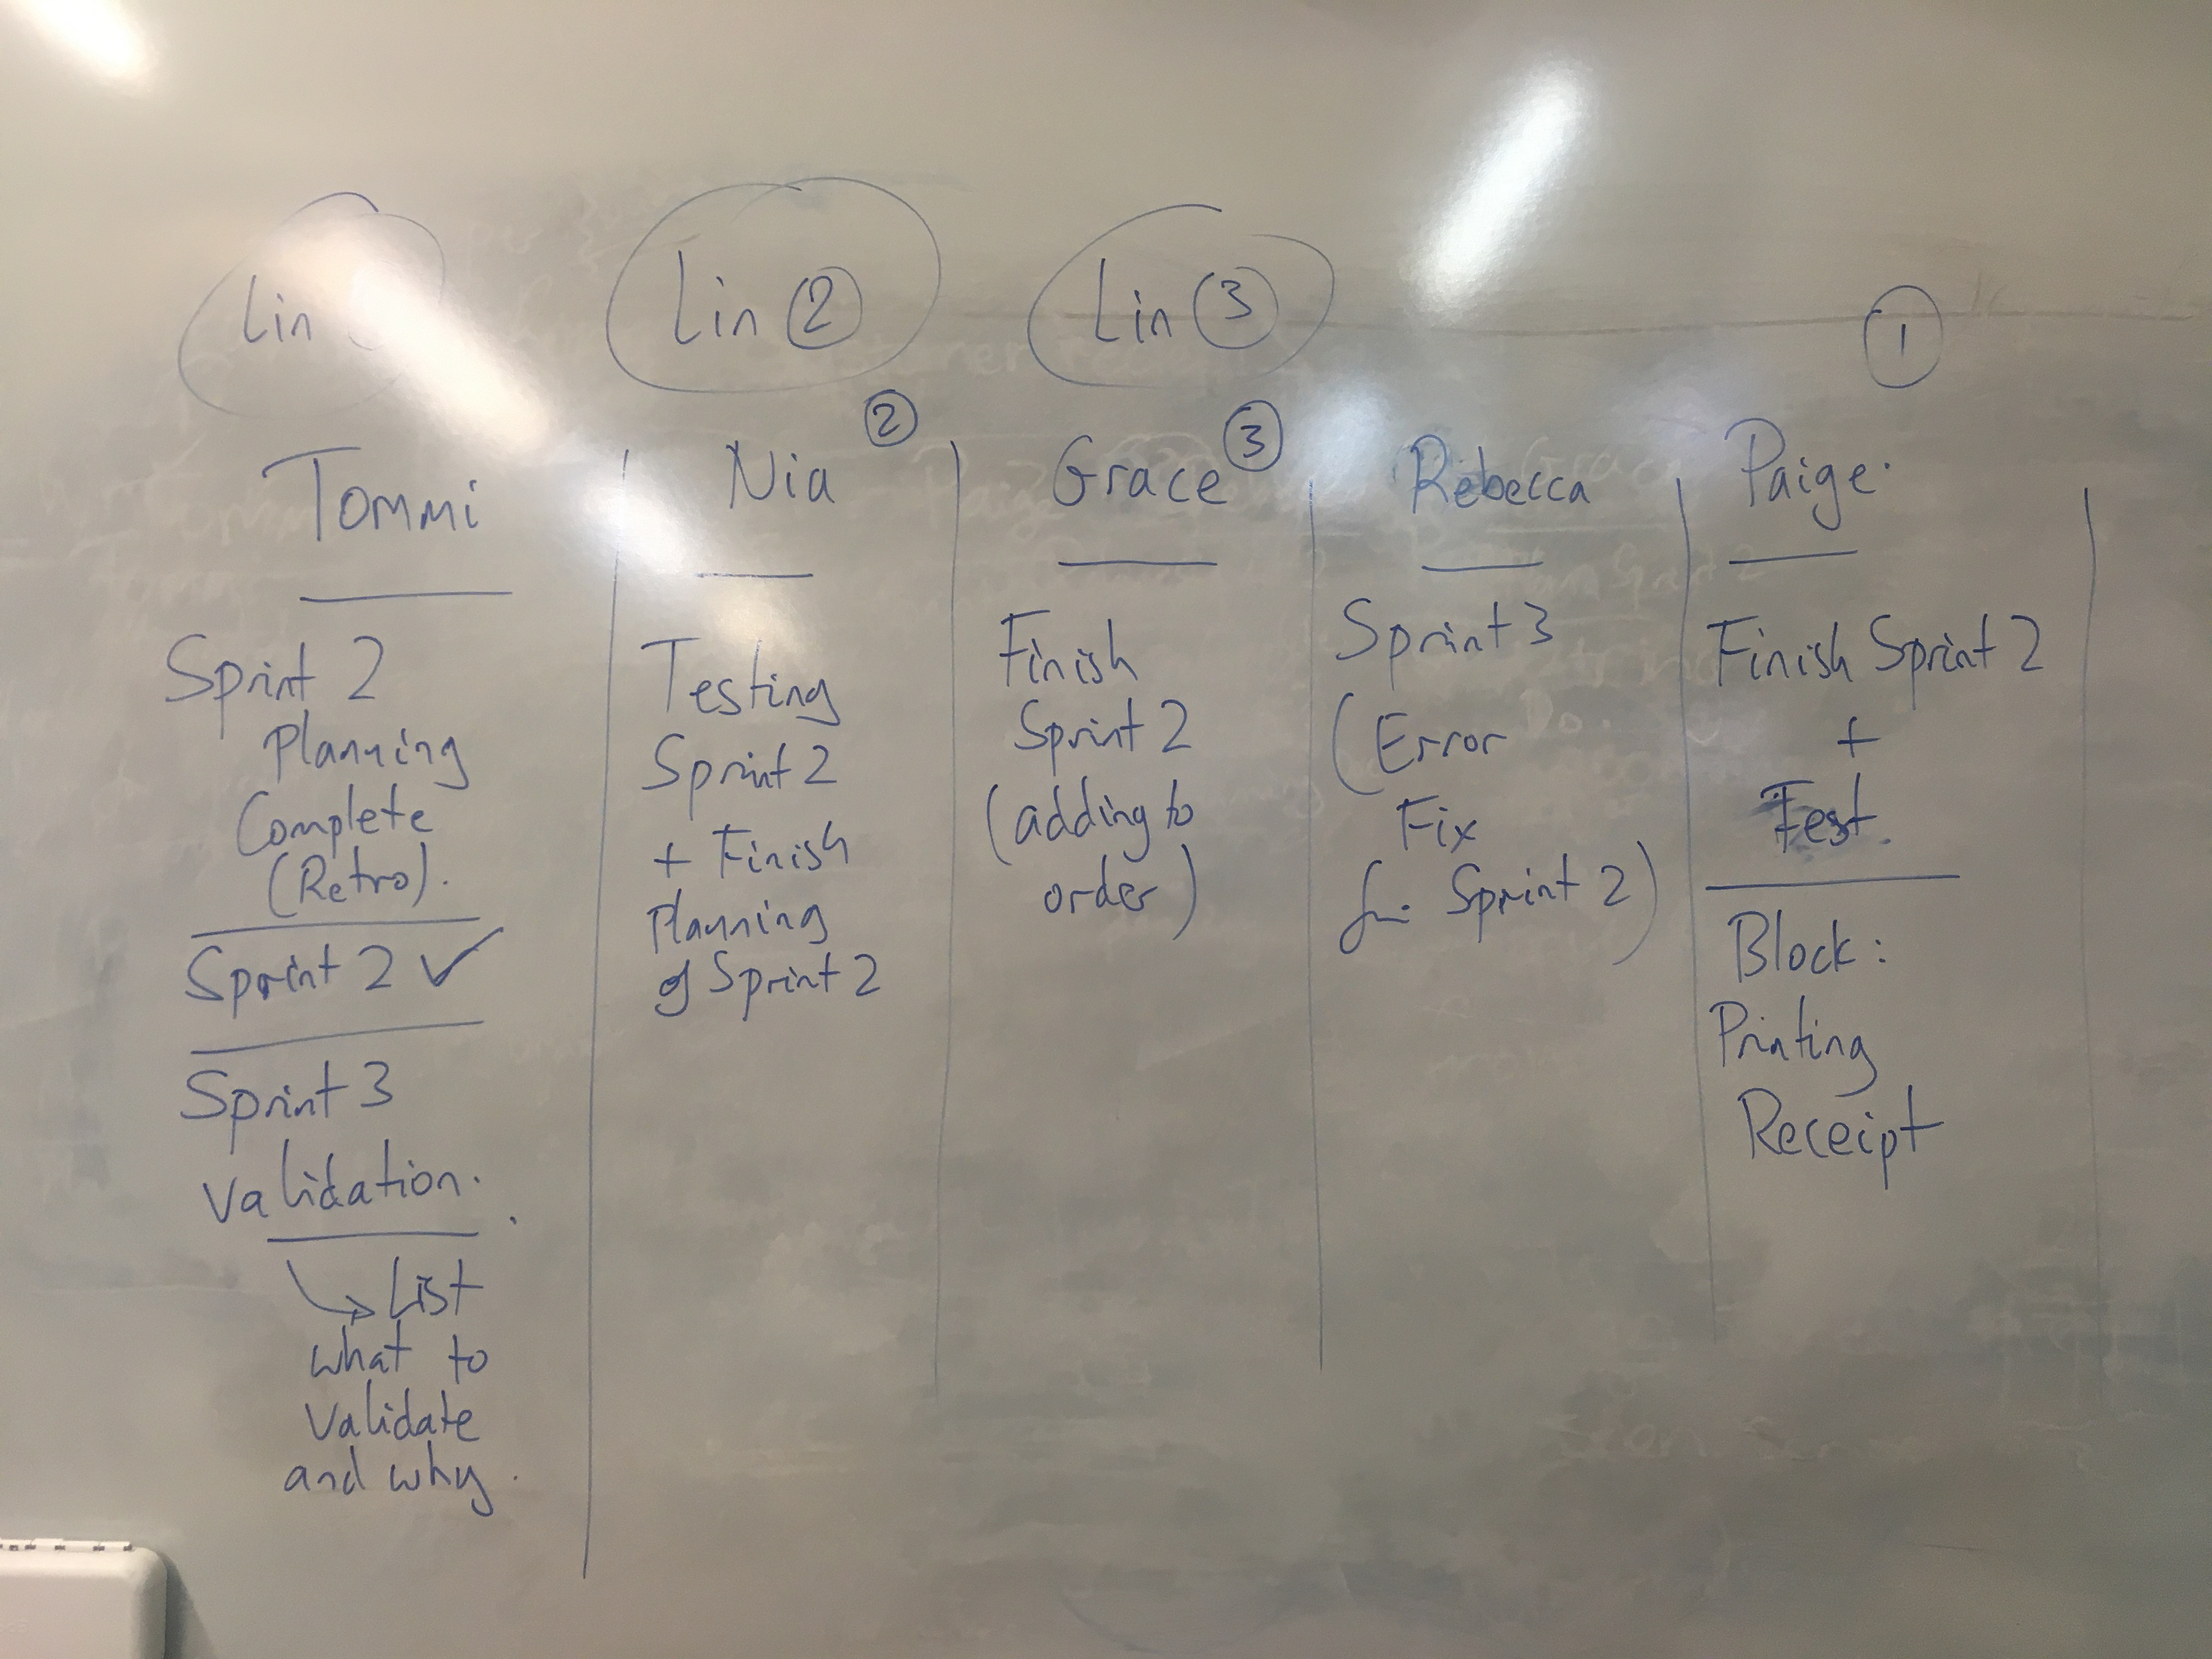 Lin
Lin ②
Lin ③
①
Tommi
Sprint 2
Planning
Complete
(Retro).
Sprint 2 ✓
Sprint 3
Validation.
→ List
what to
Validate
and why.
Nia ②
Testing
Sprint 2
+ Finish
Planning
of Sprint 2
Grace ③
Finish
Sprint 2
(adding to
order)
Rebecca
Sprint 3
(Error
Fix
for Sprint 2)
Paige.
Finish Sprint 2
+
Test.
Block:
Printing
Receipt